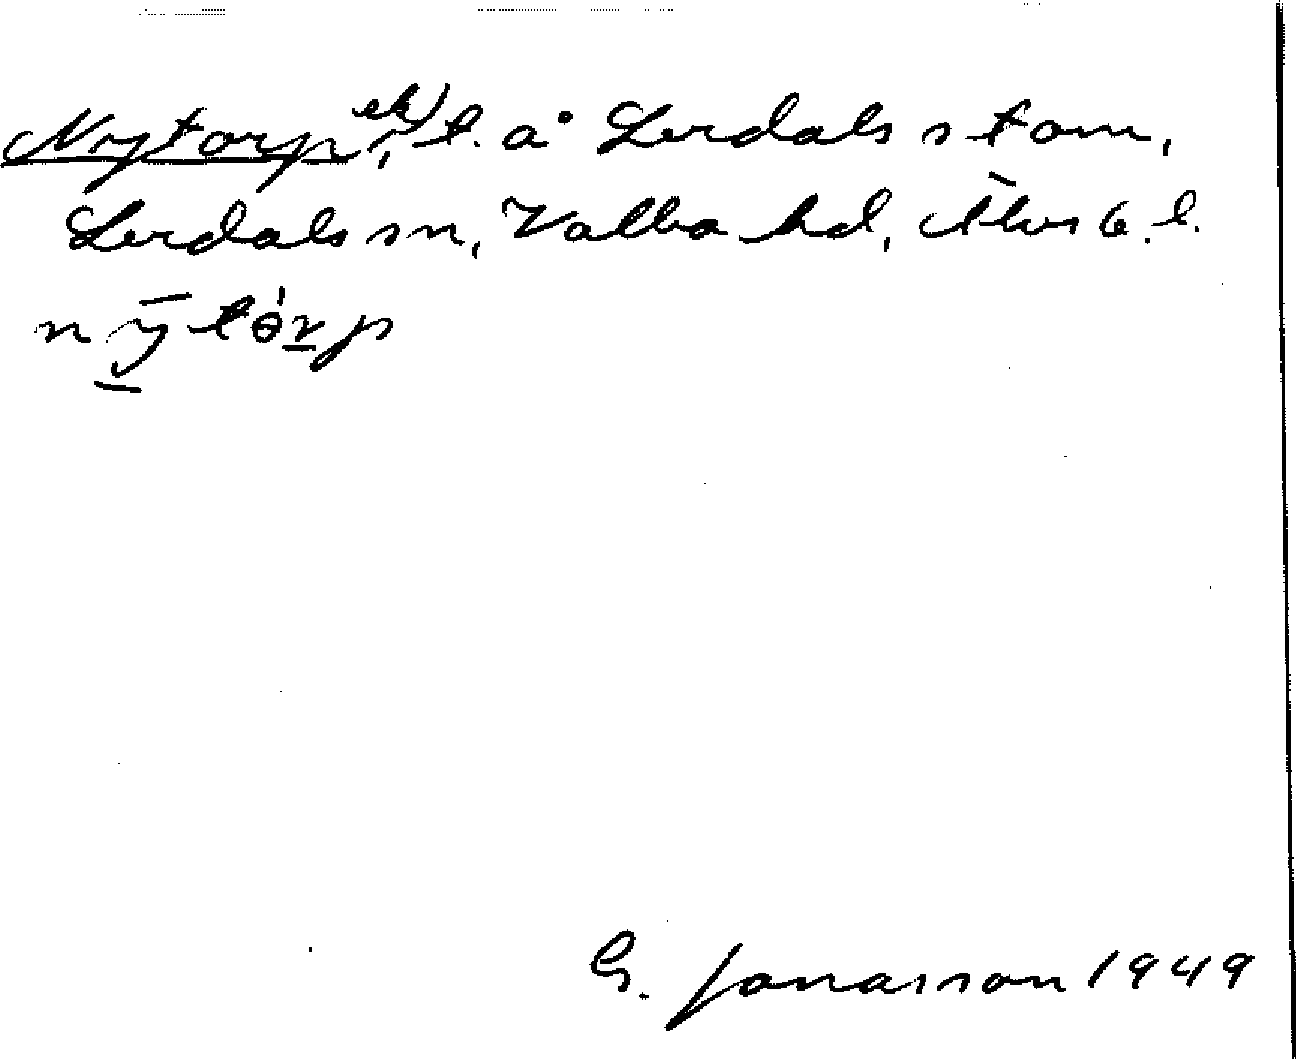 Nytorp, ek) l. å Lerdals stom,
Lerdals sn, Valbo hd, Älvsb. l.
nȳtórp
G. Jonasson 1949